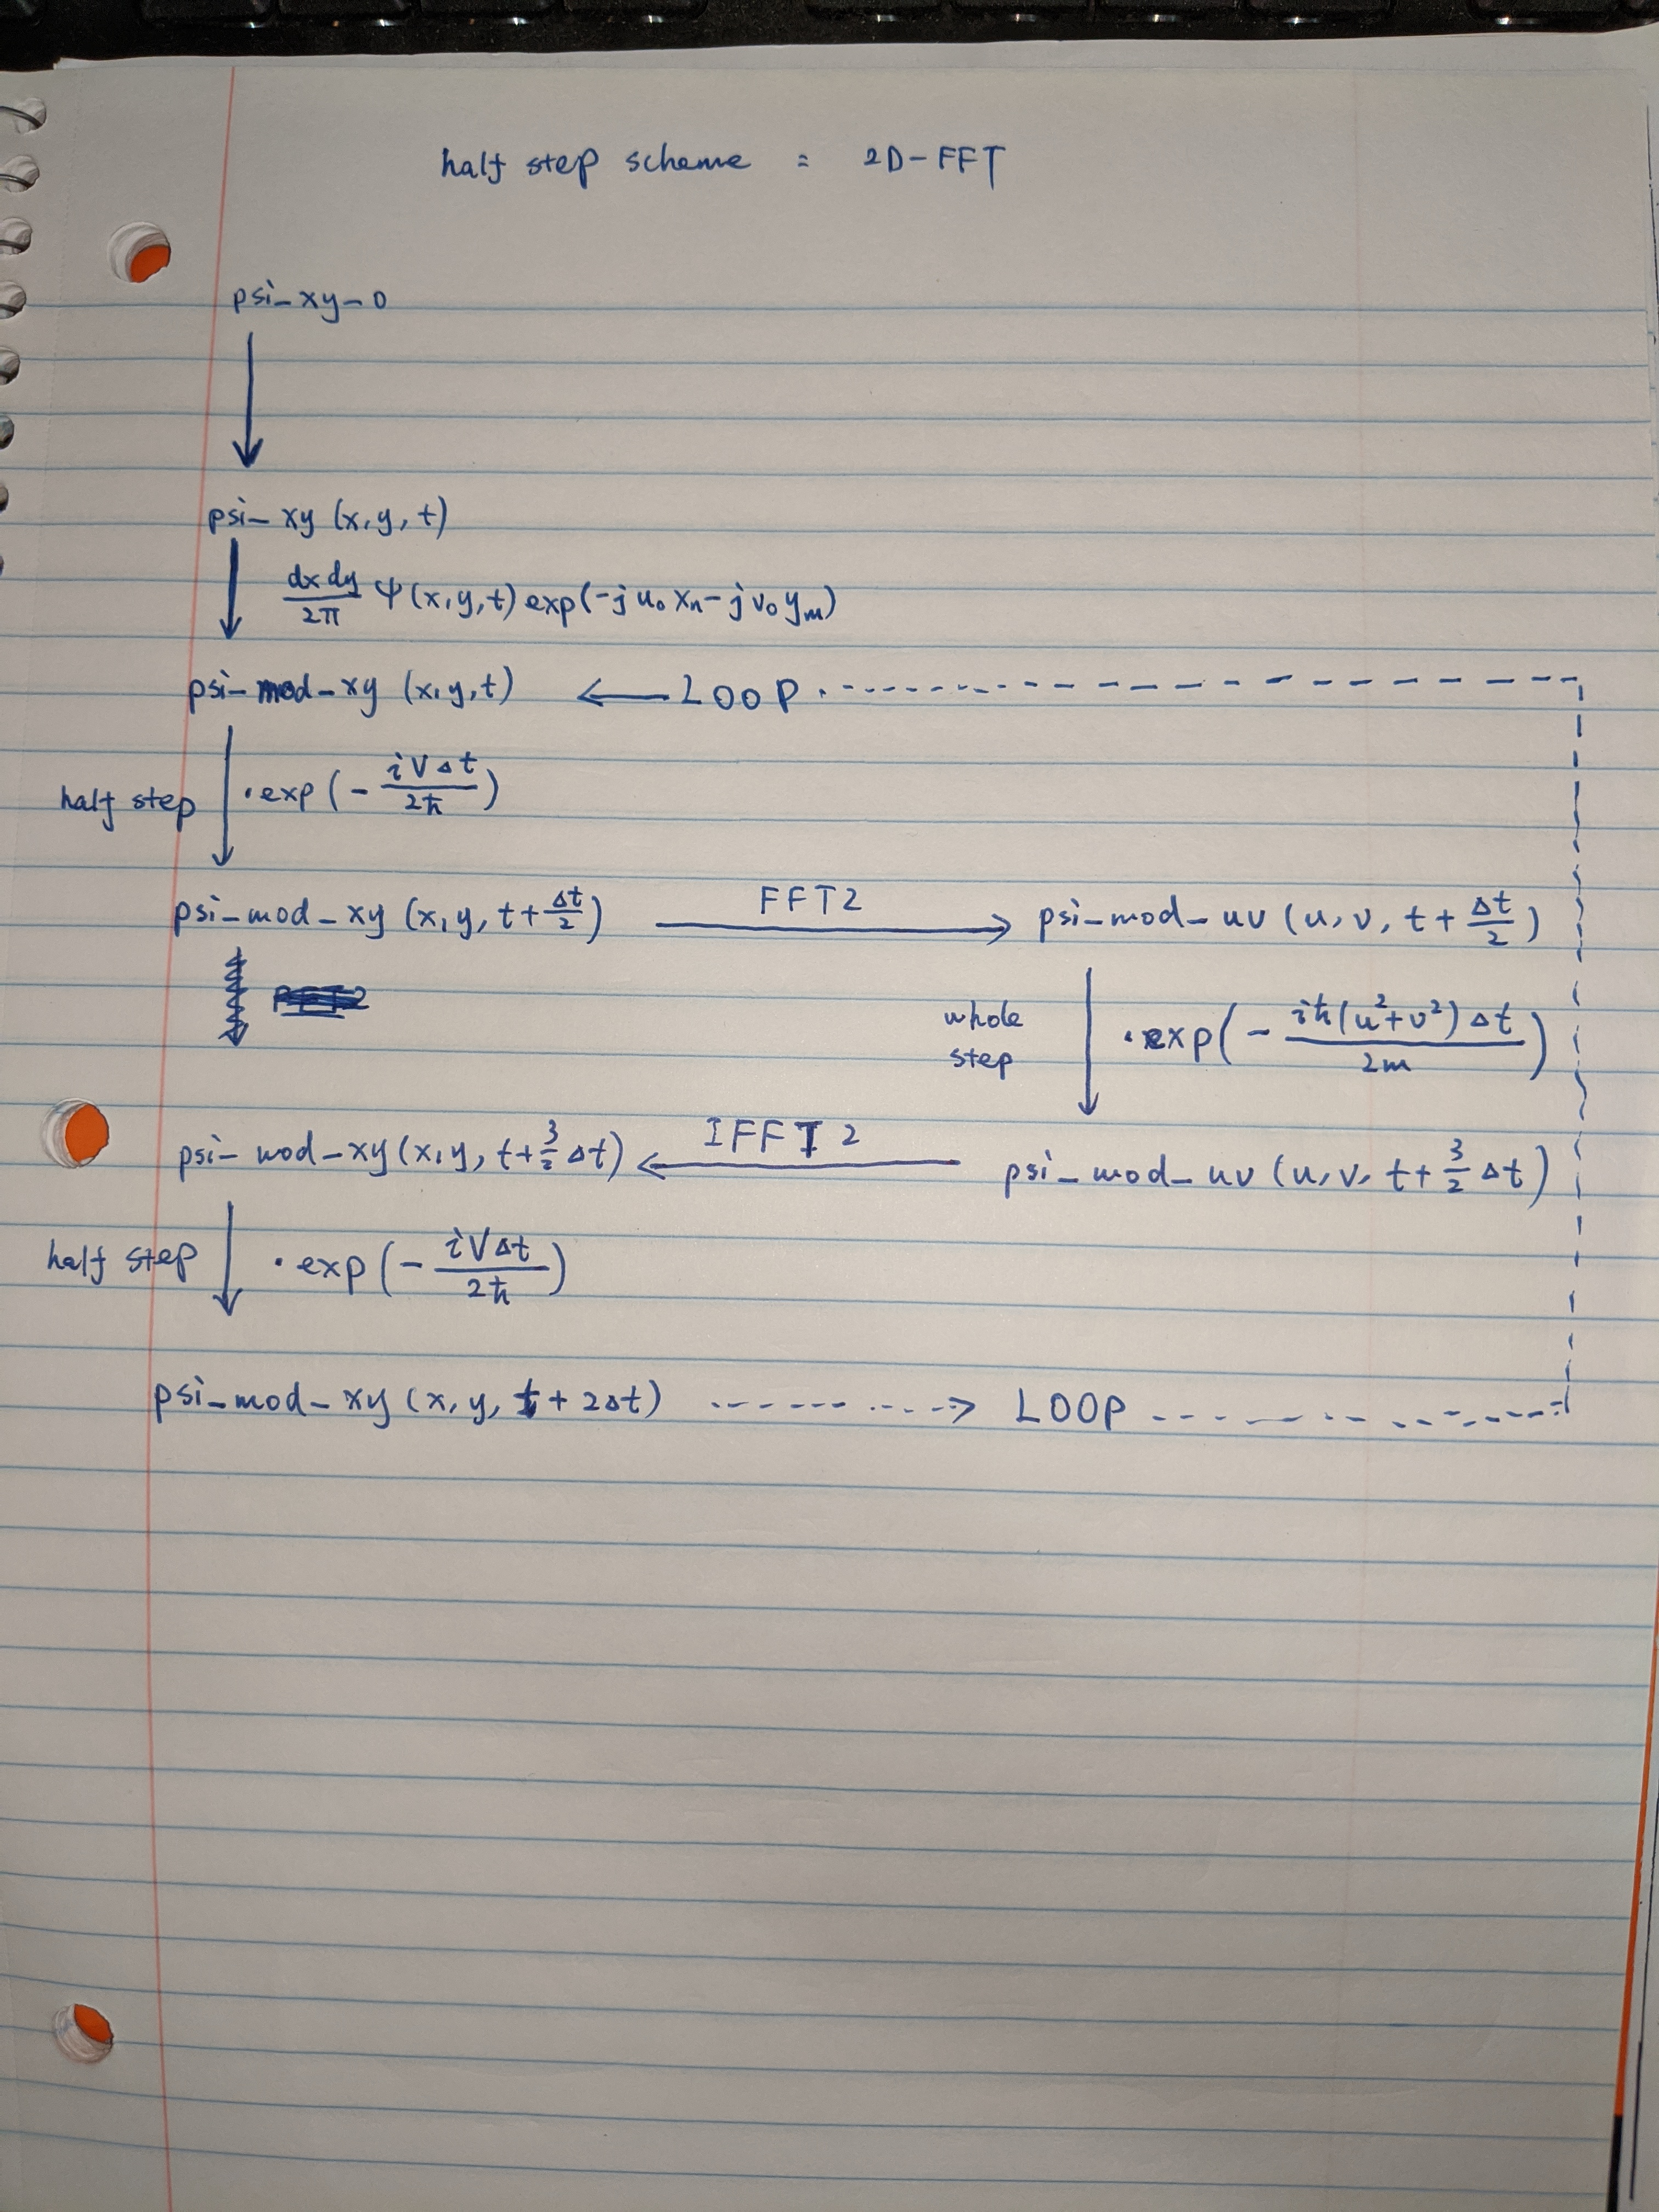 half step scheme : 2D-FFT
psi_xy_0
psi_xy (x,y,t)
dx dy / 2π ψ(x,y,t) exp(-j u₀ xₙ - j v₀ yₘ)
psi_mod_xy (x,y,t) ← LOOP
half step · exp(- iVΔt / 2ħ)
psi_mod_xy (x,y, t+Δt/2) FFT2 → psi_mod_uv (u,v, t+Δt/2)
whole step · exp(- iħ(u²+v²)Δt / 2m)
psi_mod_xy (x,y, t+3/2 Δt) ← IFFT2 psi_mod_uv (u,v, t+3/2 Δt)
half step · exp(- iVΔt / 2ħ)
psi_mod_xy (x,y, t+2Δt) → LOOP